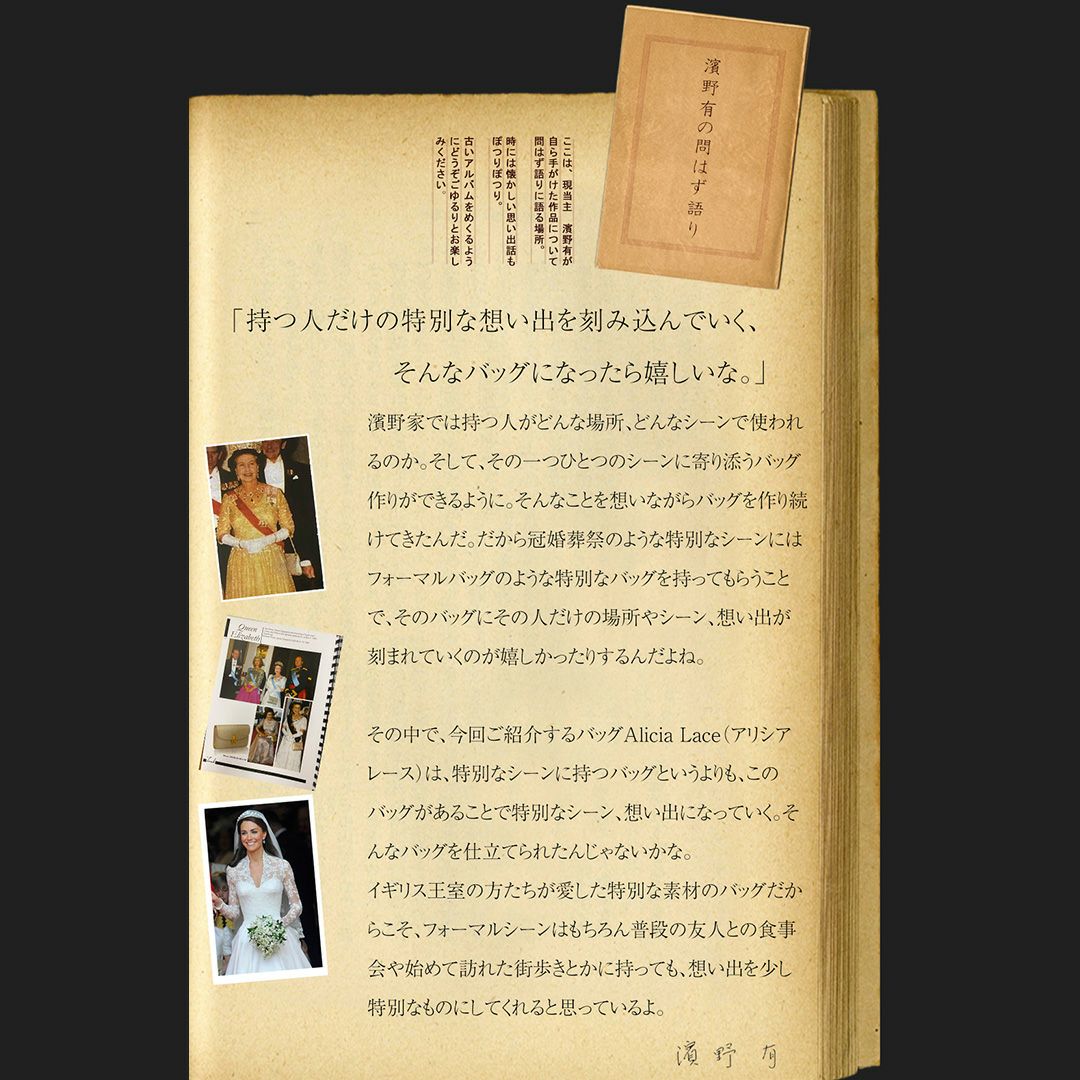 濱野有の問はず語り
ここは、現当主　濱野有が
自ら手がけた作品について
問はず語りに語る場所。
時には懐かしい思い出話も
ぽつりぽつり。
古いアルバムをめくるよう
にどうぞごゆるりとお楽し
みください。
「持つ人だけの特別な想い出を刻み込んでいく、
そんなバッグになったら嬉しいな。」
濱野家では持つ人がどんな場所、どんなシーンで使われ
るのか。そして、その一つひとつのシーンに寄り添うバッグ
作りができるように。そんなことを想いながらバッグを作り続
けてきたんだ。だから冠婚葬祭のような特別なシーンには
フォーマルバッグのような特別なバッグを持ってもらうこと
で、そのバッグにその人だけの場所やシーン、想い出が
刻まれていくのが嬉しかったりするんだよね。
その中で、今回ご紹介するバッグAlicia Lace（アリシア
レース）は、特別なシーンに持つバッグというよりも、この
バッグがあることで特別なシーン、想い出になっていく。そ
んなバッグを仕立てられたんじゃないかな。
イギリス王室の方たちが愛した特別な素材のバッグだか
らこそ、フォーマルシーンはもちろん普段の友人との食事
会や始めて訪れた街歩きとかに持っても、想い出を少し
特別なものにしてくれると思っているよ。
濱野 有
Queen
Elizabeth